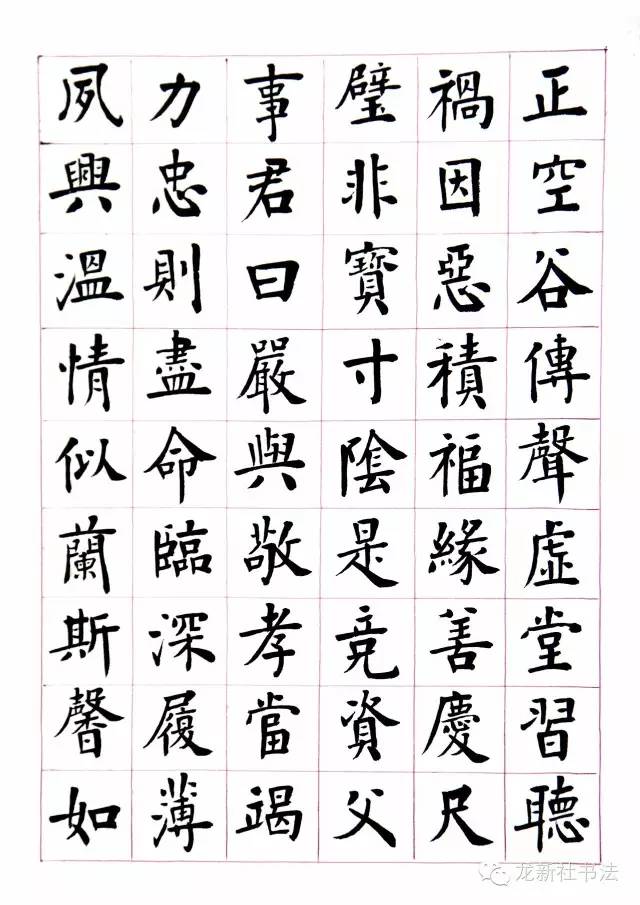 正空谷傳聲虛堂習聽
禍因惡積福緣善慶尺
璧非寶寸陰是竞資父
事君曰嚴與敬孝當竭
力忠則盡命臨深履薄
夙興溫情似蘭斯馨如
龙新社书法